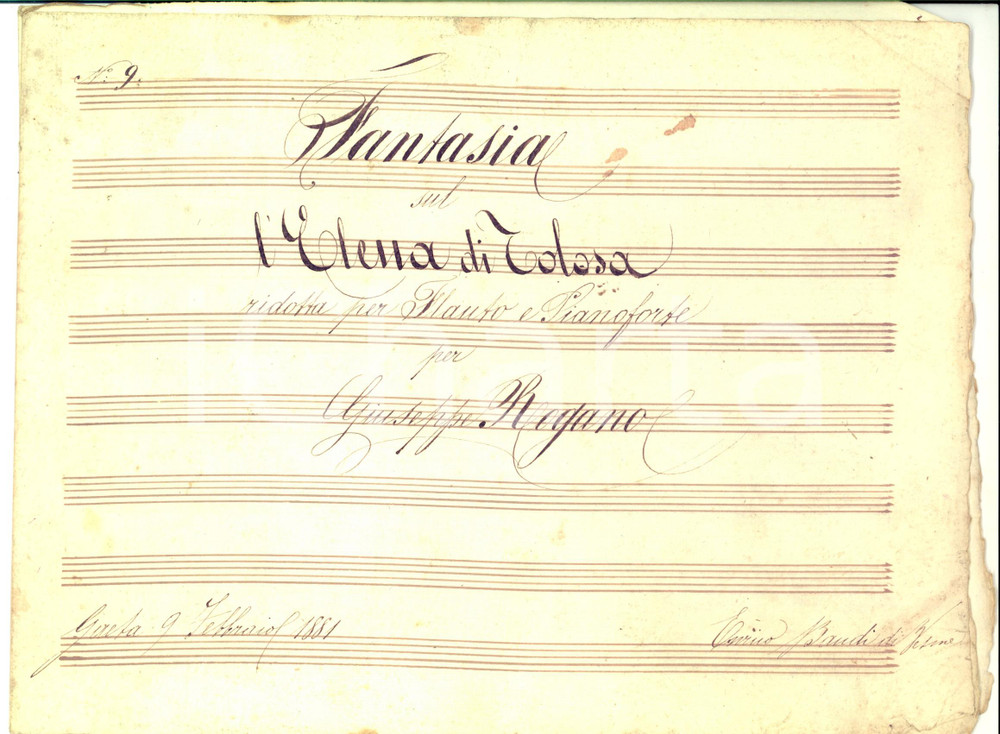 N.º 9.
Fantasia
sul
l'Elena di Tolosa
ridotta per Flauto e Pianoforte
per
Giuseppe Rogano
Gaeta 9 Febbraio 1881
Enrico Baudi di Vesme